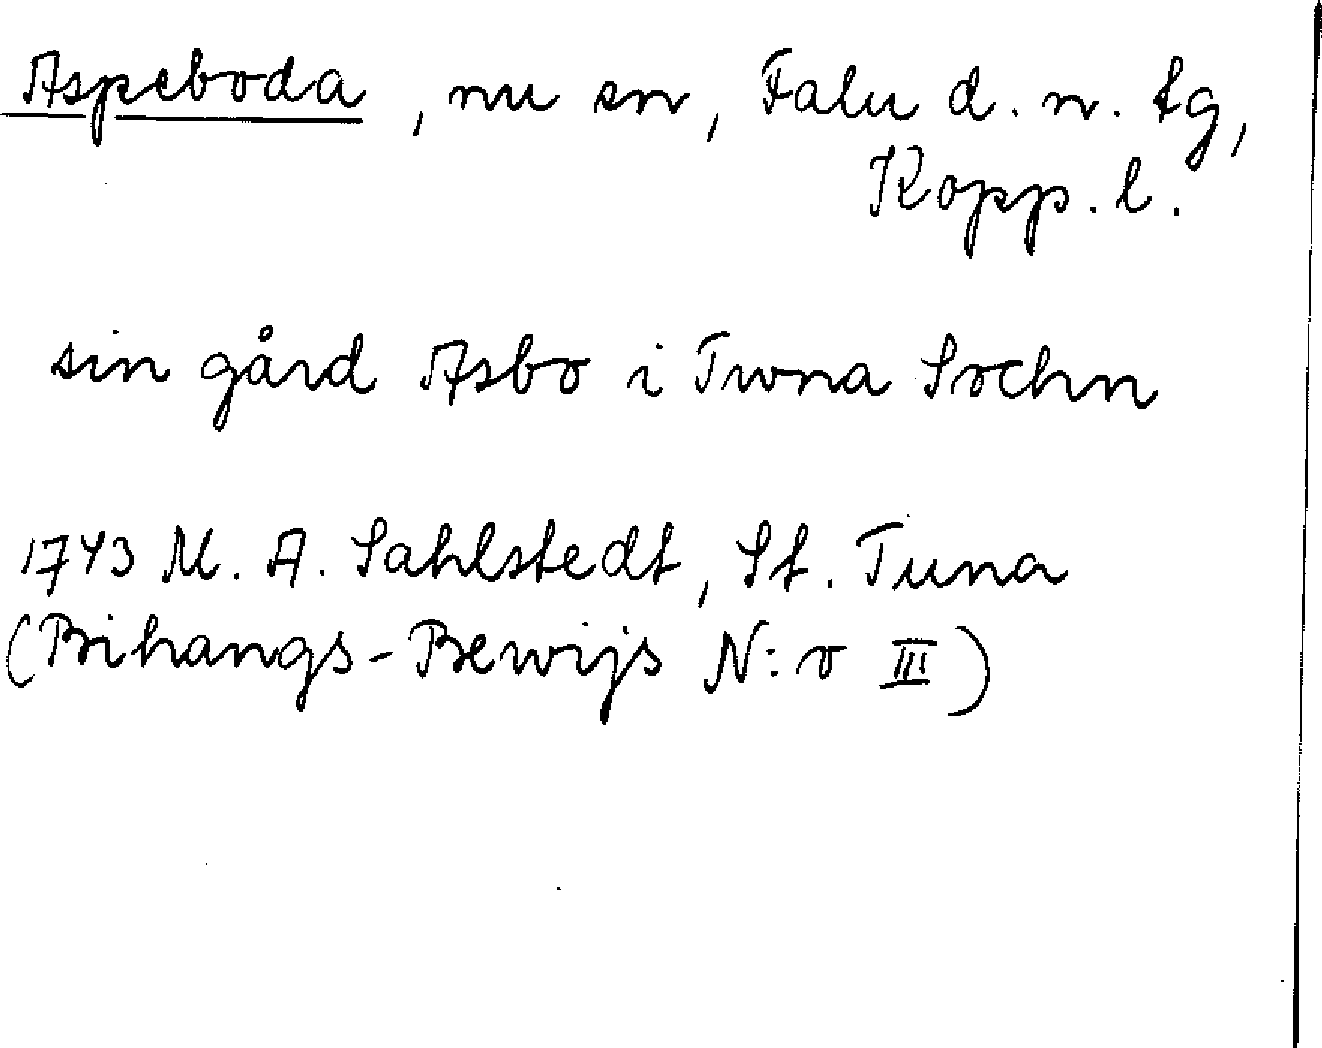 Aspeboda, nu sn, Falu d. n. tg,
Kopp. l.
sin gård Asbo i Twna Sochn
1743 M. A. Sahlstedt, St. Tuna
(Bihangs-Bewijs N:o III)